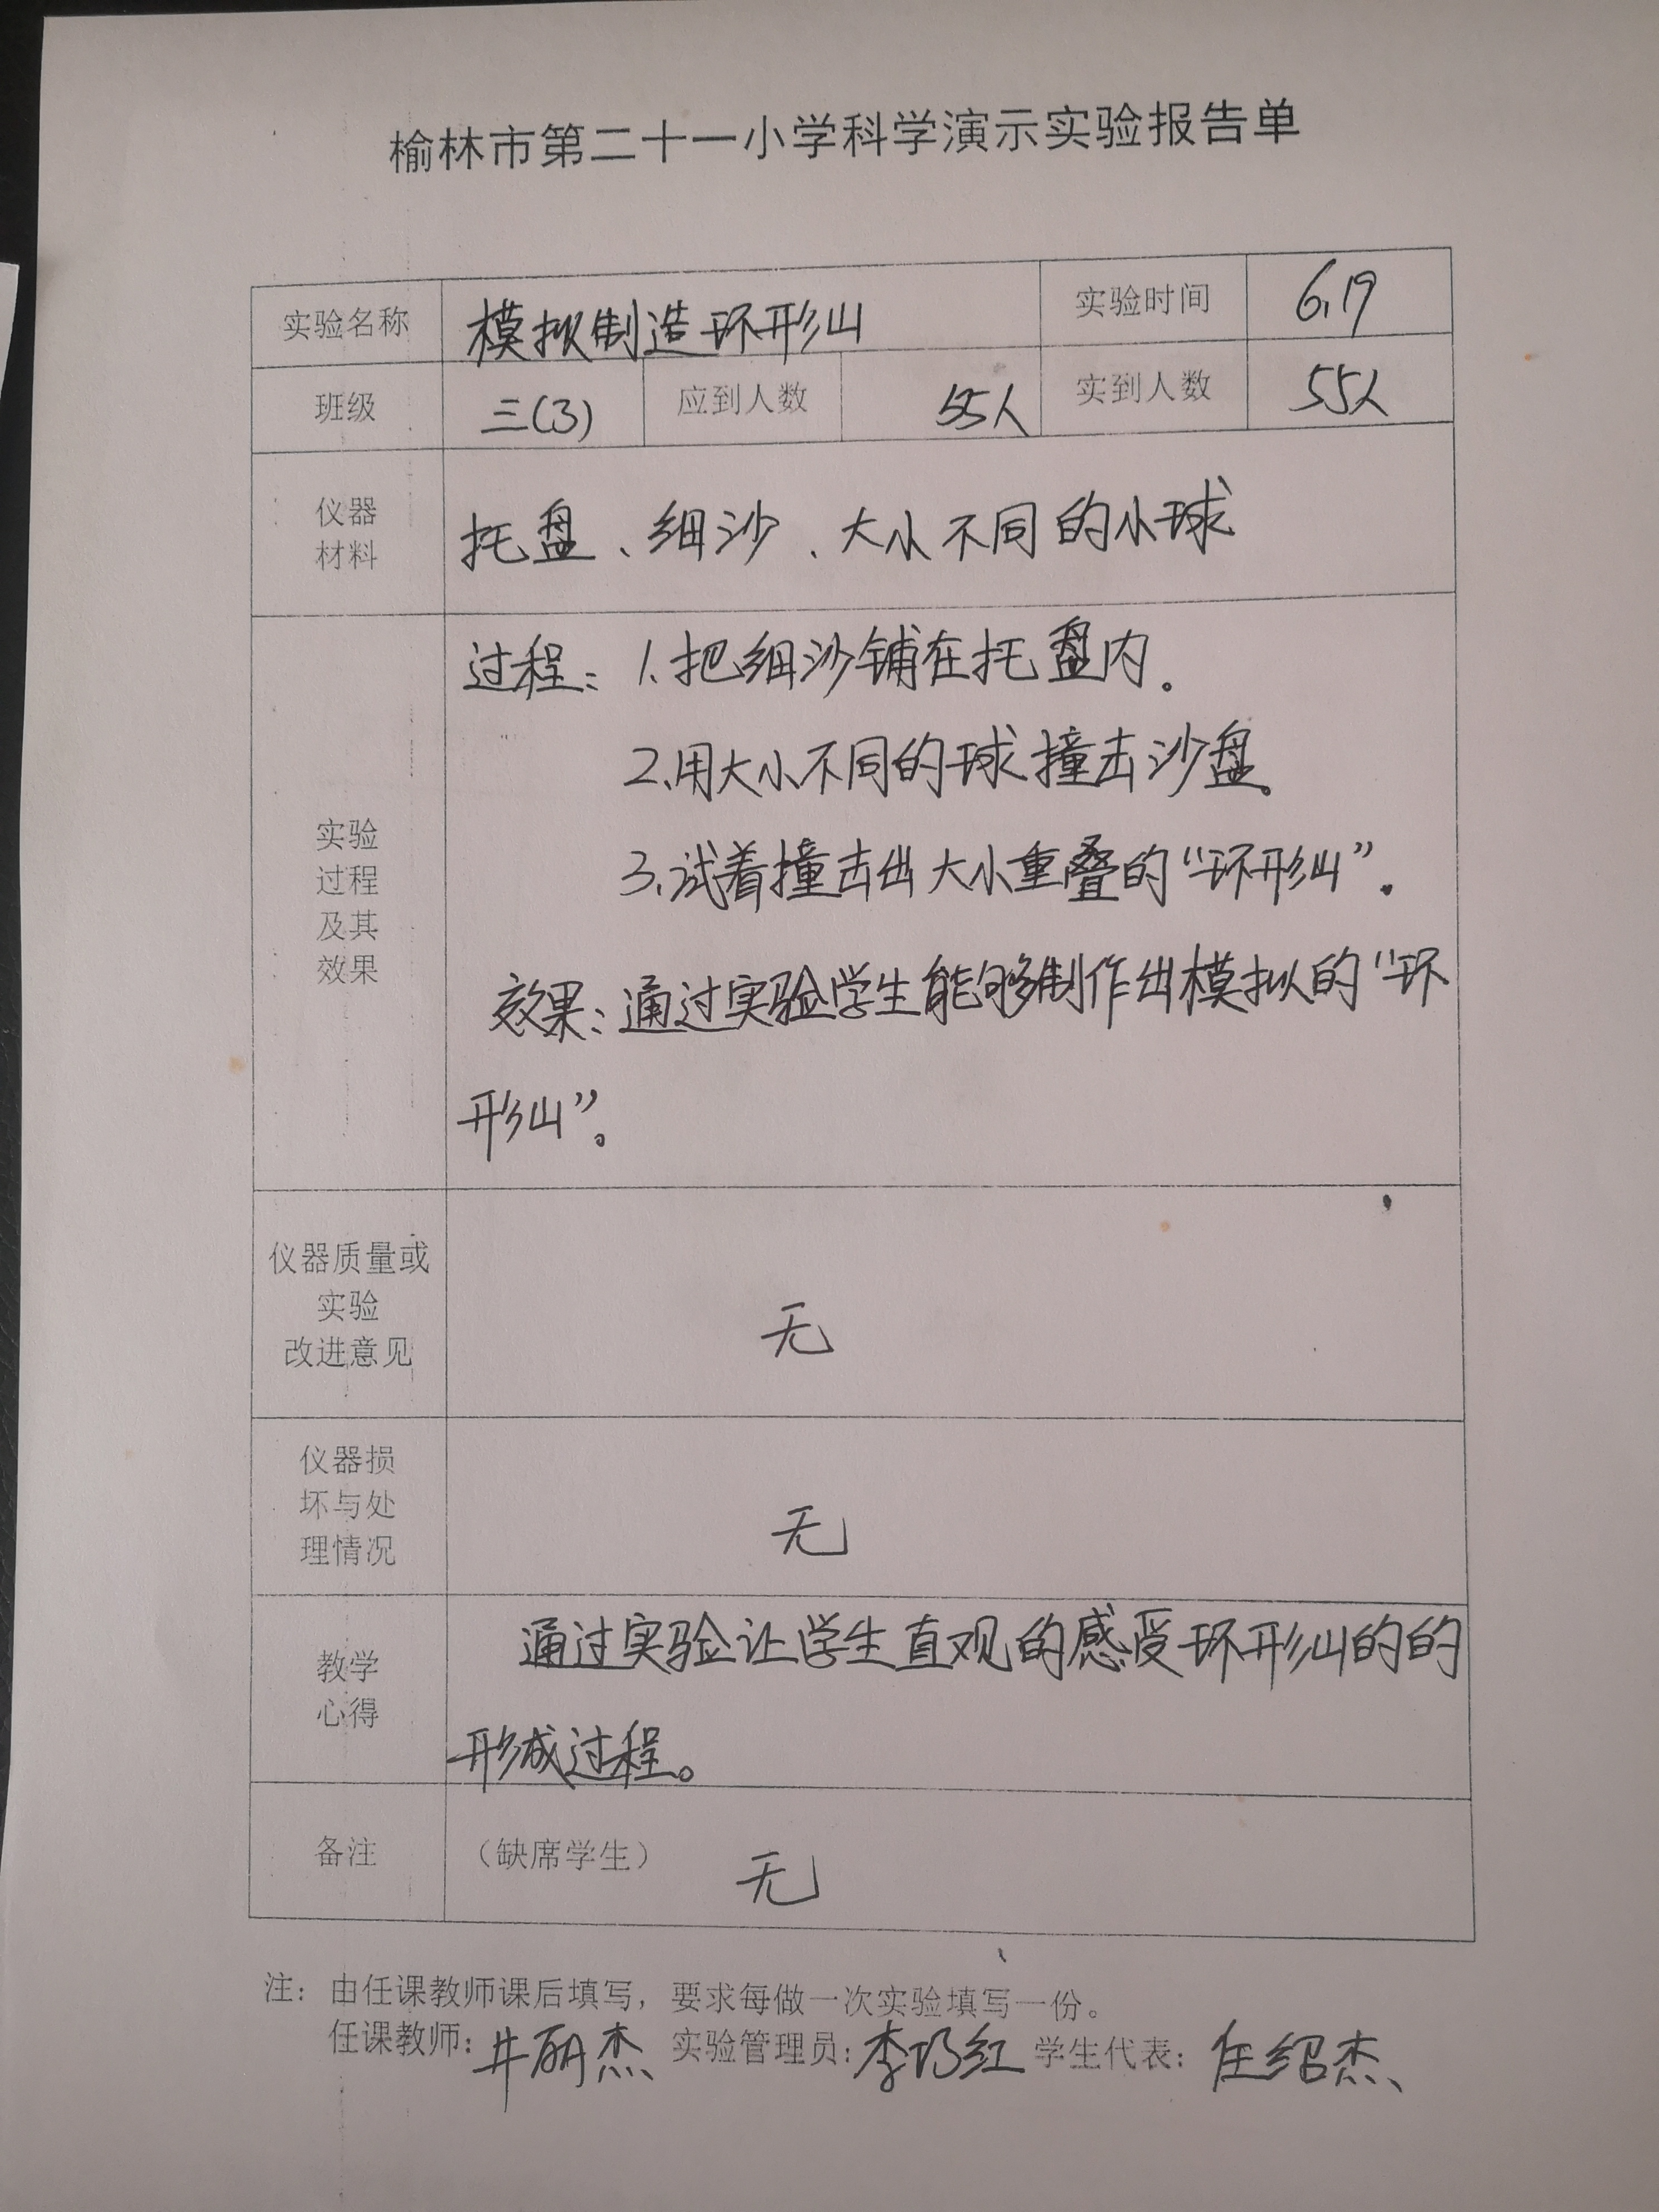 榆林市第二十一小学科学演示实验报告单
实验名称 模拟制造环形山 实验时间 6.19
班级 三(3) 应到人数 55人 实到人数 55人
仪器
材料
托盘、细沙、大小不同的小球
实验
过程
及其
效果
过程：1.把细沙铺在托盘内。
2.用大小不同的球撞击沙盘。
3.试着撞击出大小重叠的“环形山”.
效果：通过实验学生能够制作出模拟的“环
形山”。
仪器质量或
实验
改进意见
无
仪器损
坏与处
理情况
无
教学
心得
通过实验让学生直观的感受环形山的的
形成过程。
备注 （缺席学生） 无
注：由任课教师课后填写，要求每做一次实验填写一份。
任课教师：井丽杰 实验管理员：李巧红 学生代表：任绍杰